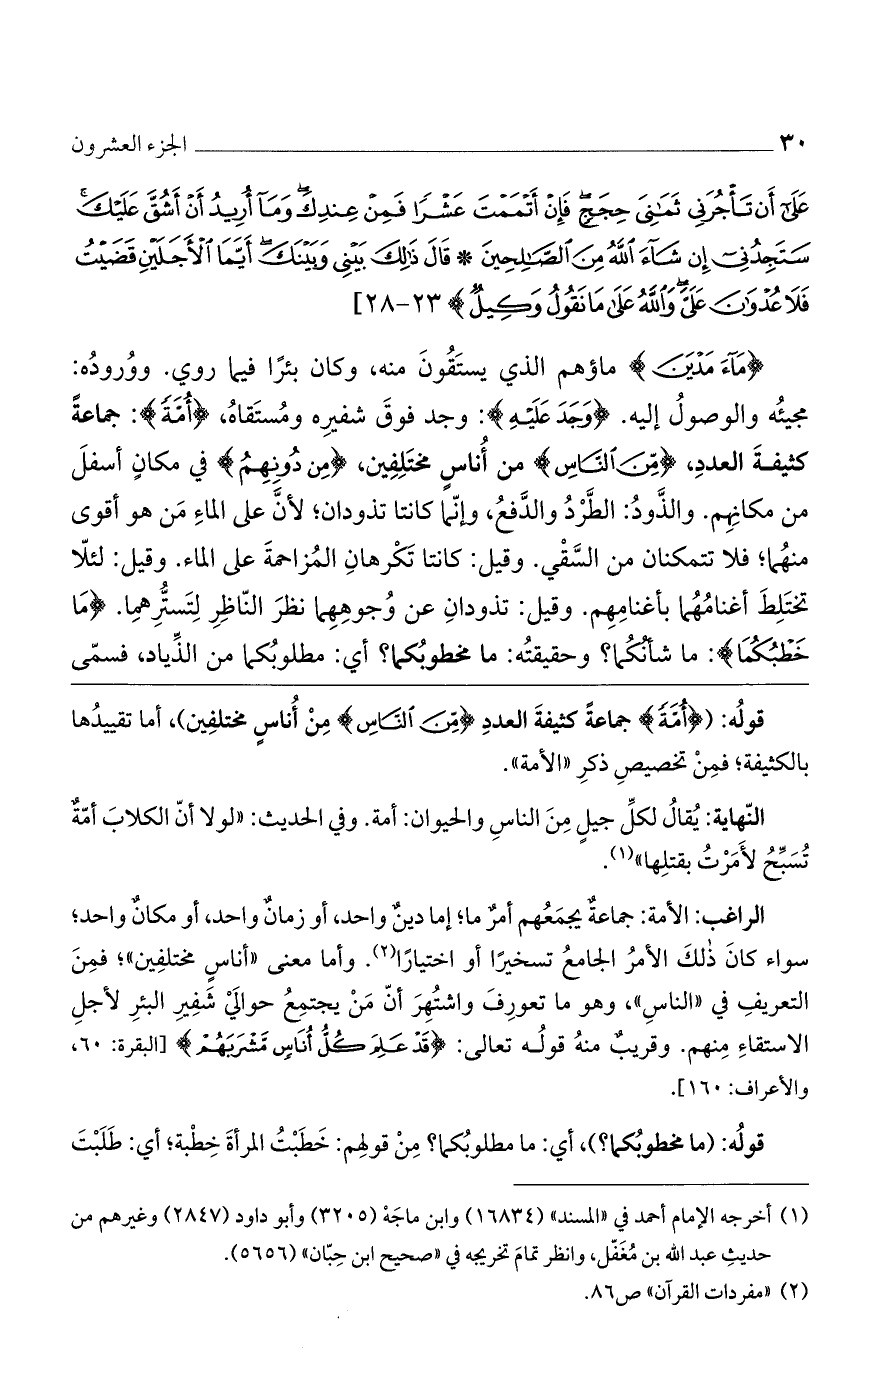 ٣٠ الجزء العشرون
عَلَىٰٓ أَن تَأْجُرَنِى ثَمَٰنِىَ حِجَجٍ ۖ فَإِنْ أَتْمَمْتَ عَشْرًا فَمِنْ عِندِكَ ۖ وَمَآ أُرِيدُ أَنْ أَشُقَّ عَلَيْكَ ۚ
سَتَجِدُنِىٓ إِن شَآءَ ٱللَّهُ مِنَ ٱلصَّٰلِحِينَ * قَالَ ذَٰلِكَ بَيْنِى وَبَيْنَكَ ۖ أَيَّمَا ٱلْأَجَلَيْنِ قَضَيْتُ
فَلَا عُدْوَٰنَ عَلَىَّ ۖ وَٱللَّهُ عَلَىٰ مَا نَقُولُ وَكِيلٌ﴾ ٢٣-٢٨]
﴿مَآءَ مَدْيَنَ﴾ ماؤهم الذي يستَقُونَ منه، وكان بئرًا فيما روي. ووُرودُه:
مجيئُه والوصولُ إليه. ﴿وَجَدَ عَلَيْهِ﴾: وجد فوقَ شفيره ومُستَقاهُ، ﴿أُمَّةً﴾: جماعةً
كثيفةَ العددِ، ﴿مِّنَ ٱلنَّاسِ﴾ من أُناسٍ مختَلِفِين، ﴿مِن دُونِهِمُ﴾ في مكانٍ أسفلَ
من مكانِهم. والذَّودُ: الطَّرْدُ والدَّفعُ، وإنّما كانتا تذودان؛ لأنَّ على الماءِ مَن هو أقوى
منهُما؛ فلا تتمكنان من السَّقْي. وقيل: كانتا تَكْرهانِ المُزاحمةَ على الماء. وقيل: لئلّا
تختَلِطَ أغنامُهُما بأغنامِهم. وقيل: تذودانِ عن وُجوهِهِما نظرَ النّاظِرِ لِتَستُّرِهِما. ﴿مَا
خَطْبُكُمَا﴾: ما شأنُكُما؟ وحقيقتُه: ما مخطوبُكما؟ أي: مطلوبُكما من الذِّياد، فسمّى
قولُه: (﴿أُمَّةً﴾ جماعةً كثيفةَ العددِ ﴿مِّنَ ٱلنَّاسِ﴾ مِنْ أُناسٍ مختلفِين)، أما تقييدُها
بالكثيفة؛ فمِنْ تخصيصِ ذكرِ «الأمة».
النّهاية: يُقالُ لكلِّ جيلٍ مِنَ الناسِ والحيوان: أمة. وفي الحديث: «لولا أنّ الكلابَ أمّةٌ
تُسَبِّحُ لأَمَرْتُ بقتلِها»(١).
الراغب: الأمة: جماعةٌ يجمَعُهم أمرٌ ما؛ إما دينٌ واحد، أو زمانٌ واحد، أو مكانٌ واحد؛
سواء كانَ ذٰلكَ الأمرُ الجامعُ تسخيرًا أو اختيارًا(٢). وأما معنى «أناسٍ مختلفِين»؛ فمِنَ
التعريفِ في «الناسِ»، وهو ما تعورِفَ واشتُهِرَ أنّ مَنْ يجتمِعُ حوالَيْ شَفِيرِ البئرِ لأجلِ
الاستقاءِ مِنهم. وقريبٌ منهُ قولُه تعالى: ﴿قَدْ عَلِمَ كُلُّ أُنَاسٍ مَّشْرَبَهُمْ﴾ [البقرة: ٦٠،
والأعراف: ١٦٠].
قولُه: (ما مخطوبُكما؟)، أي: ما مطلوبُكما؟ مِنْ قولِهم: خَطَبْتُ المرأةَ خِطْبة؛ أي: طَلَبْتَ
(١) أخرجه الإمام أحمد في «المسند» (١٦٨٣٤) وابن ماجَهْ (٣٢٠٥) وأبو داود (٢٨٤٧) وغيرهم من
حديثِ عبد الله بن مُغَفّل، وانظر تمامَ تخريجِه في «صحيح ابن حِبّان» (٥٦٥٦).
(٢) «مفردات القرآن» ص٨٦.